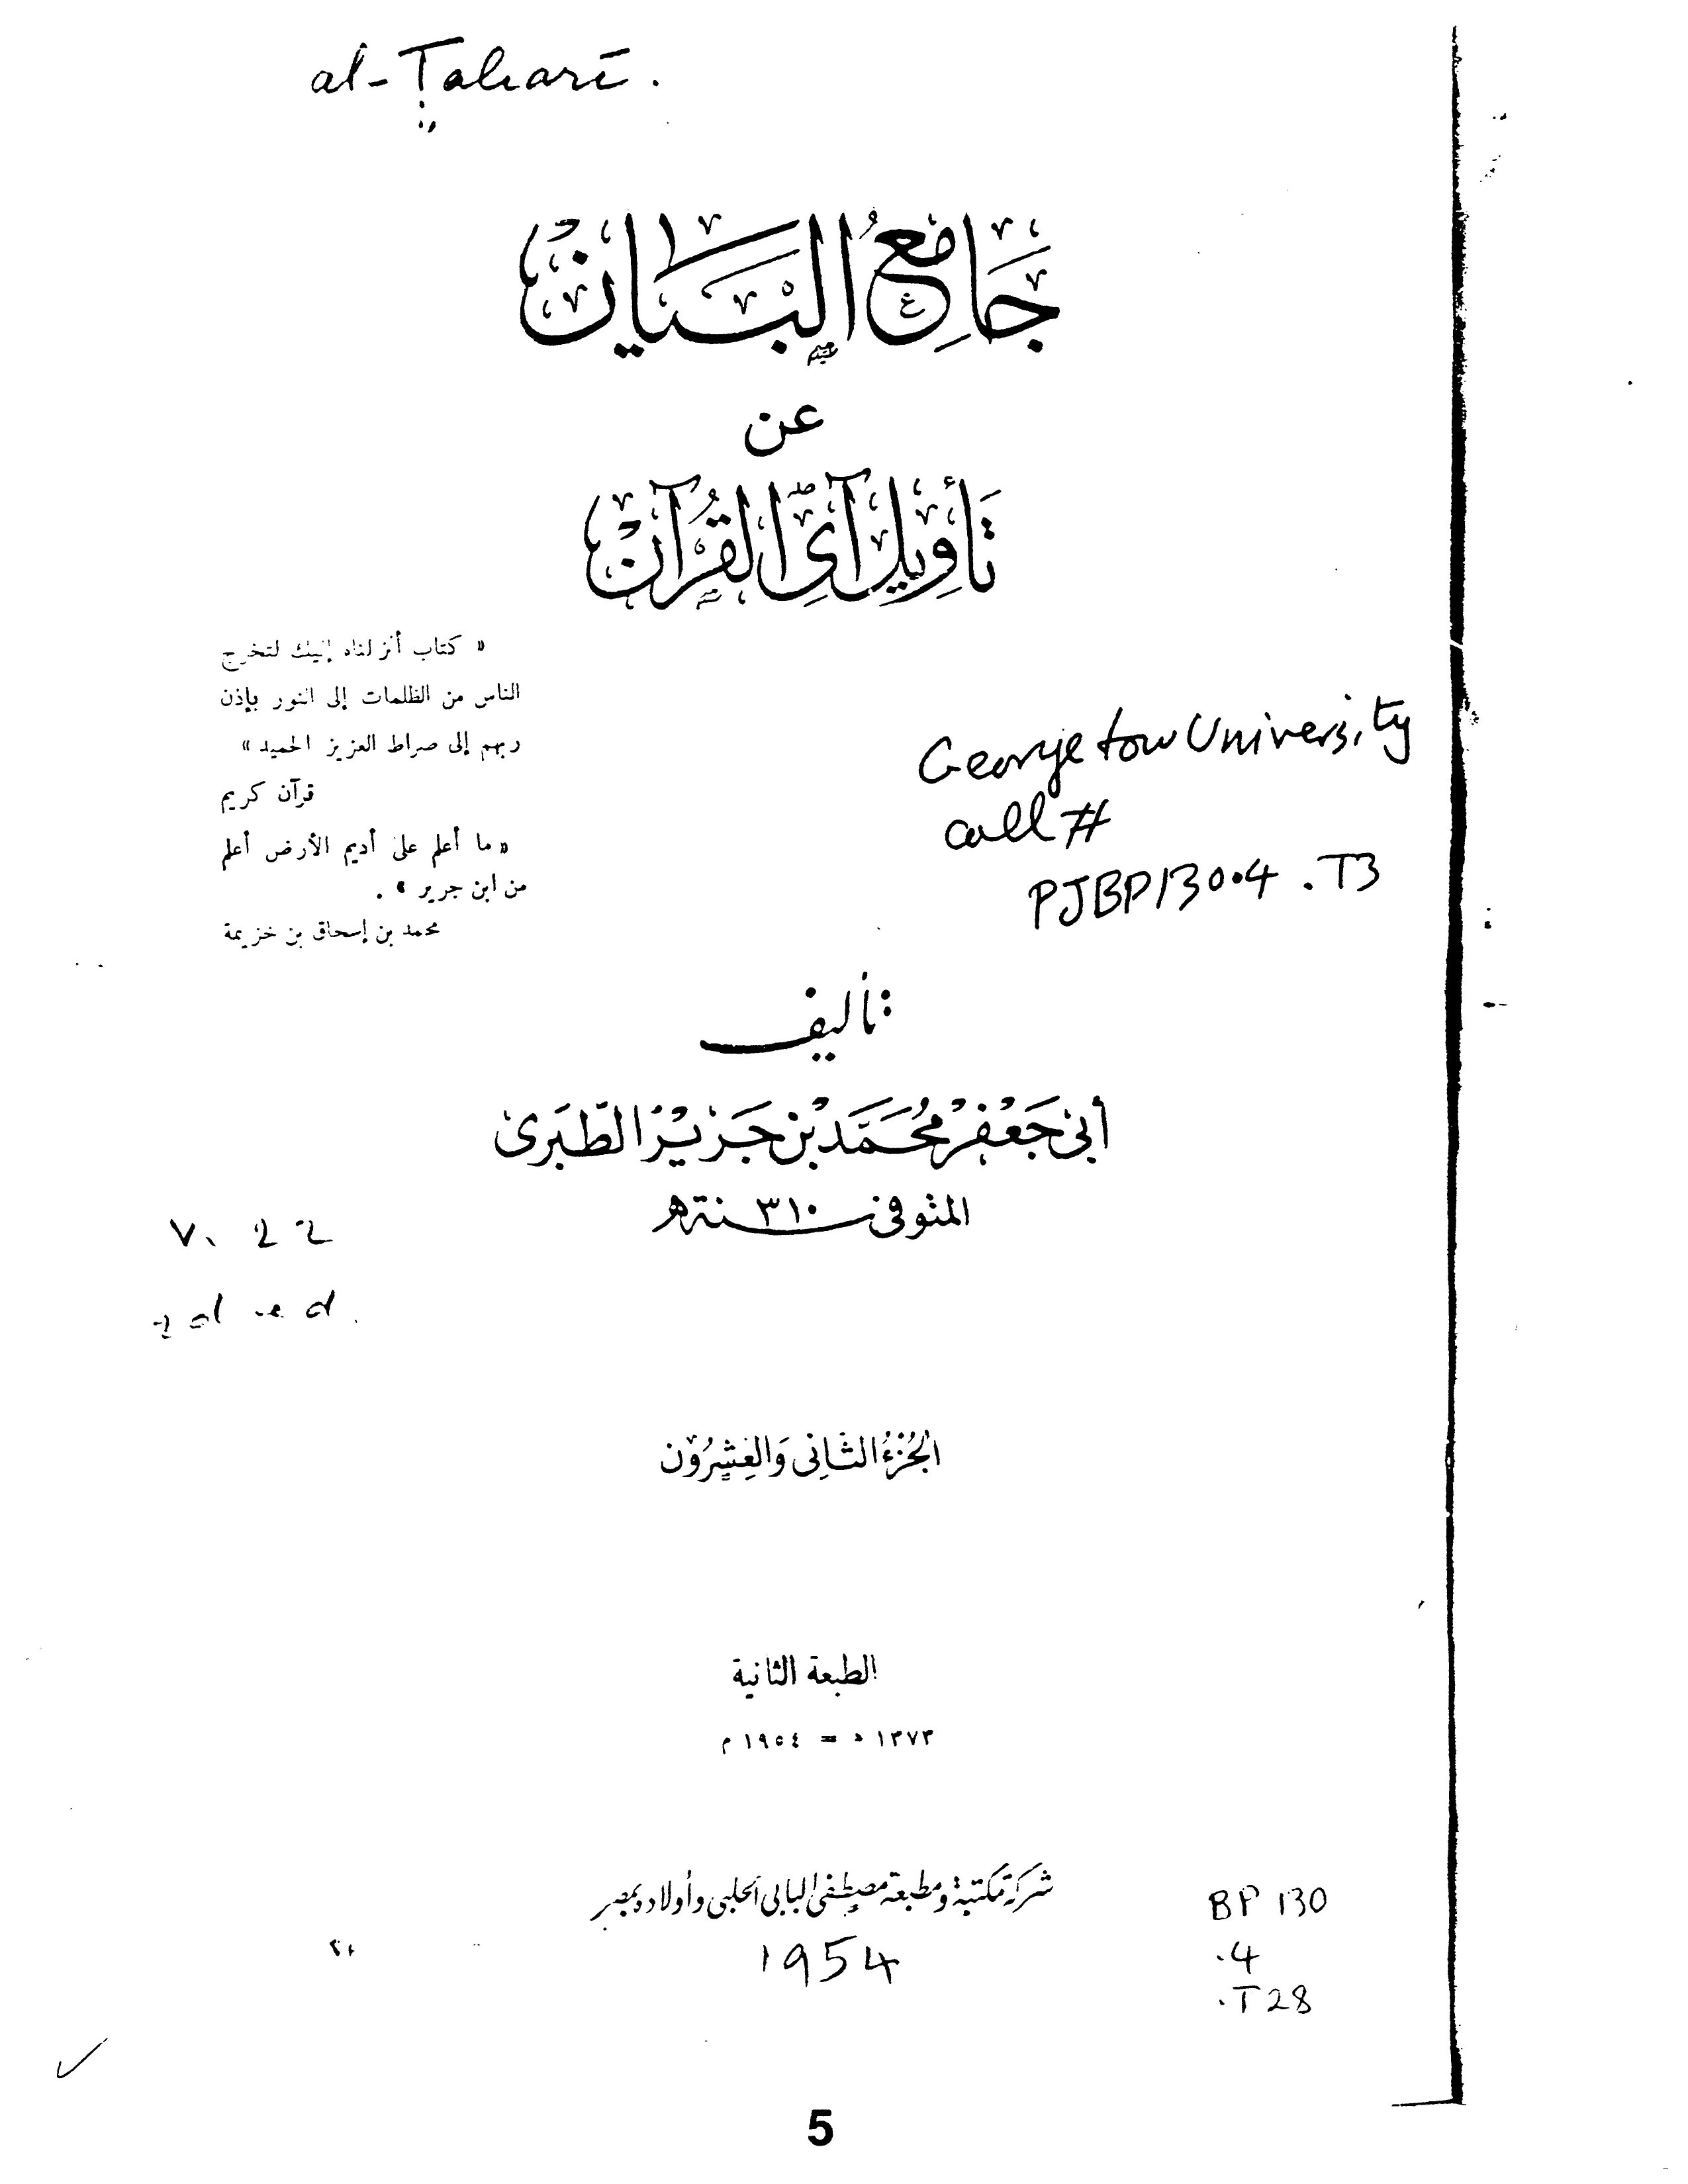 al-Ṭabarī.
جَامِعُ البَيَان
عن
تَأْوِيلِ آيِ القُرْآن
« كتاب أنزلناه إليك لتخرج
الناس من الظلمات إلى النور بإذن
ربهم إلى صراط العزيز الحميد »
قرآن كريم
« ما أعلم على أديم الأرض أعلم
من ابن جرير » .
محمد بن إسحاق بن خزيمة
Georgetown University
call #
PJBP130.4 .T3
تأليف
أبى جَعْفَرْ مُحَمَّد بْن جَرِيْر الطَّبَرى
المتوفى سنة ٣١٠ هـ
v. 22
2d ed.
الجُزْءُ الثَّانِى وَالعِشْرُوْن
الطبعة الثانية
١٣٧٣ ه = ١٩٥٤ م
شركة مكتبة ومطبعة مصطفى البابى الحلبى وأولاده بمصر
1954
BP 130
.4
.T28
5